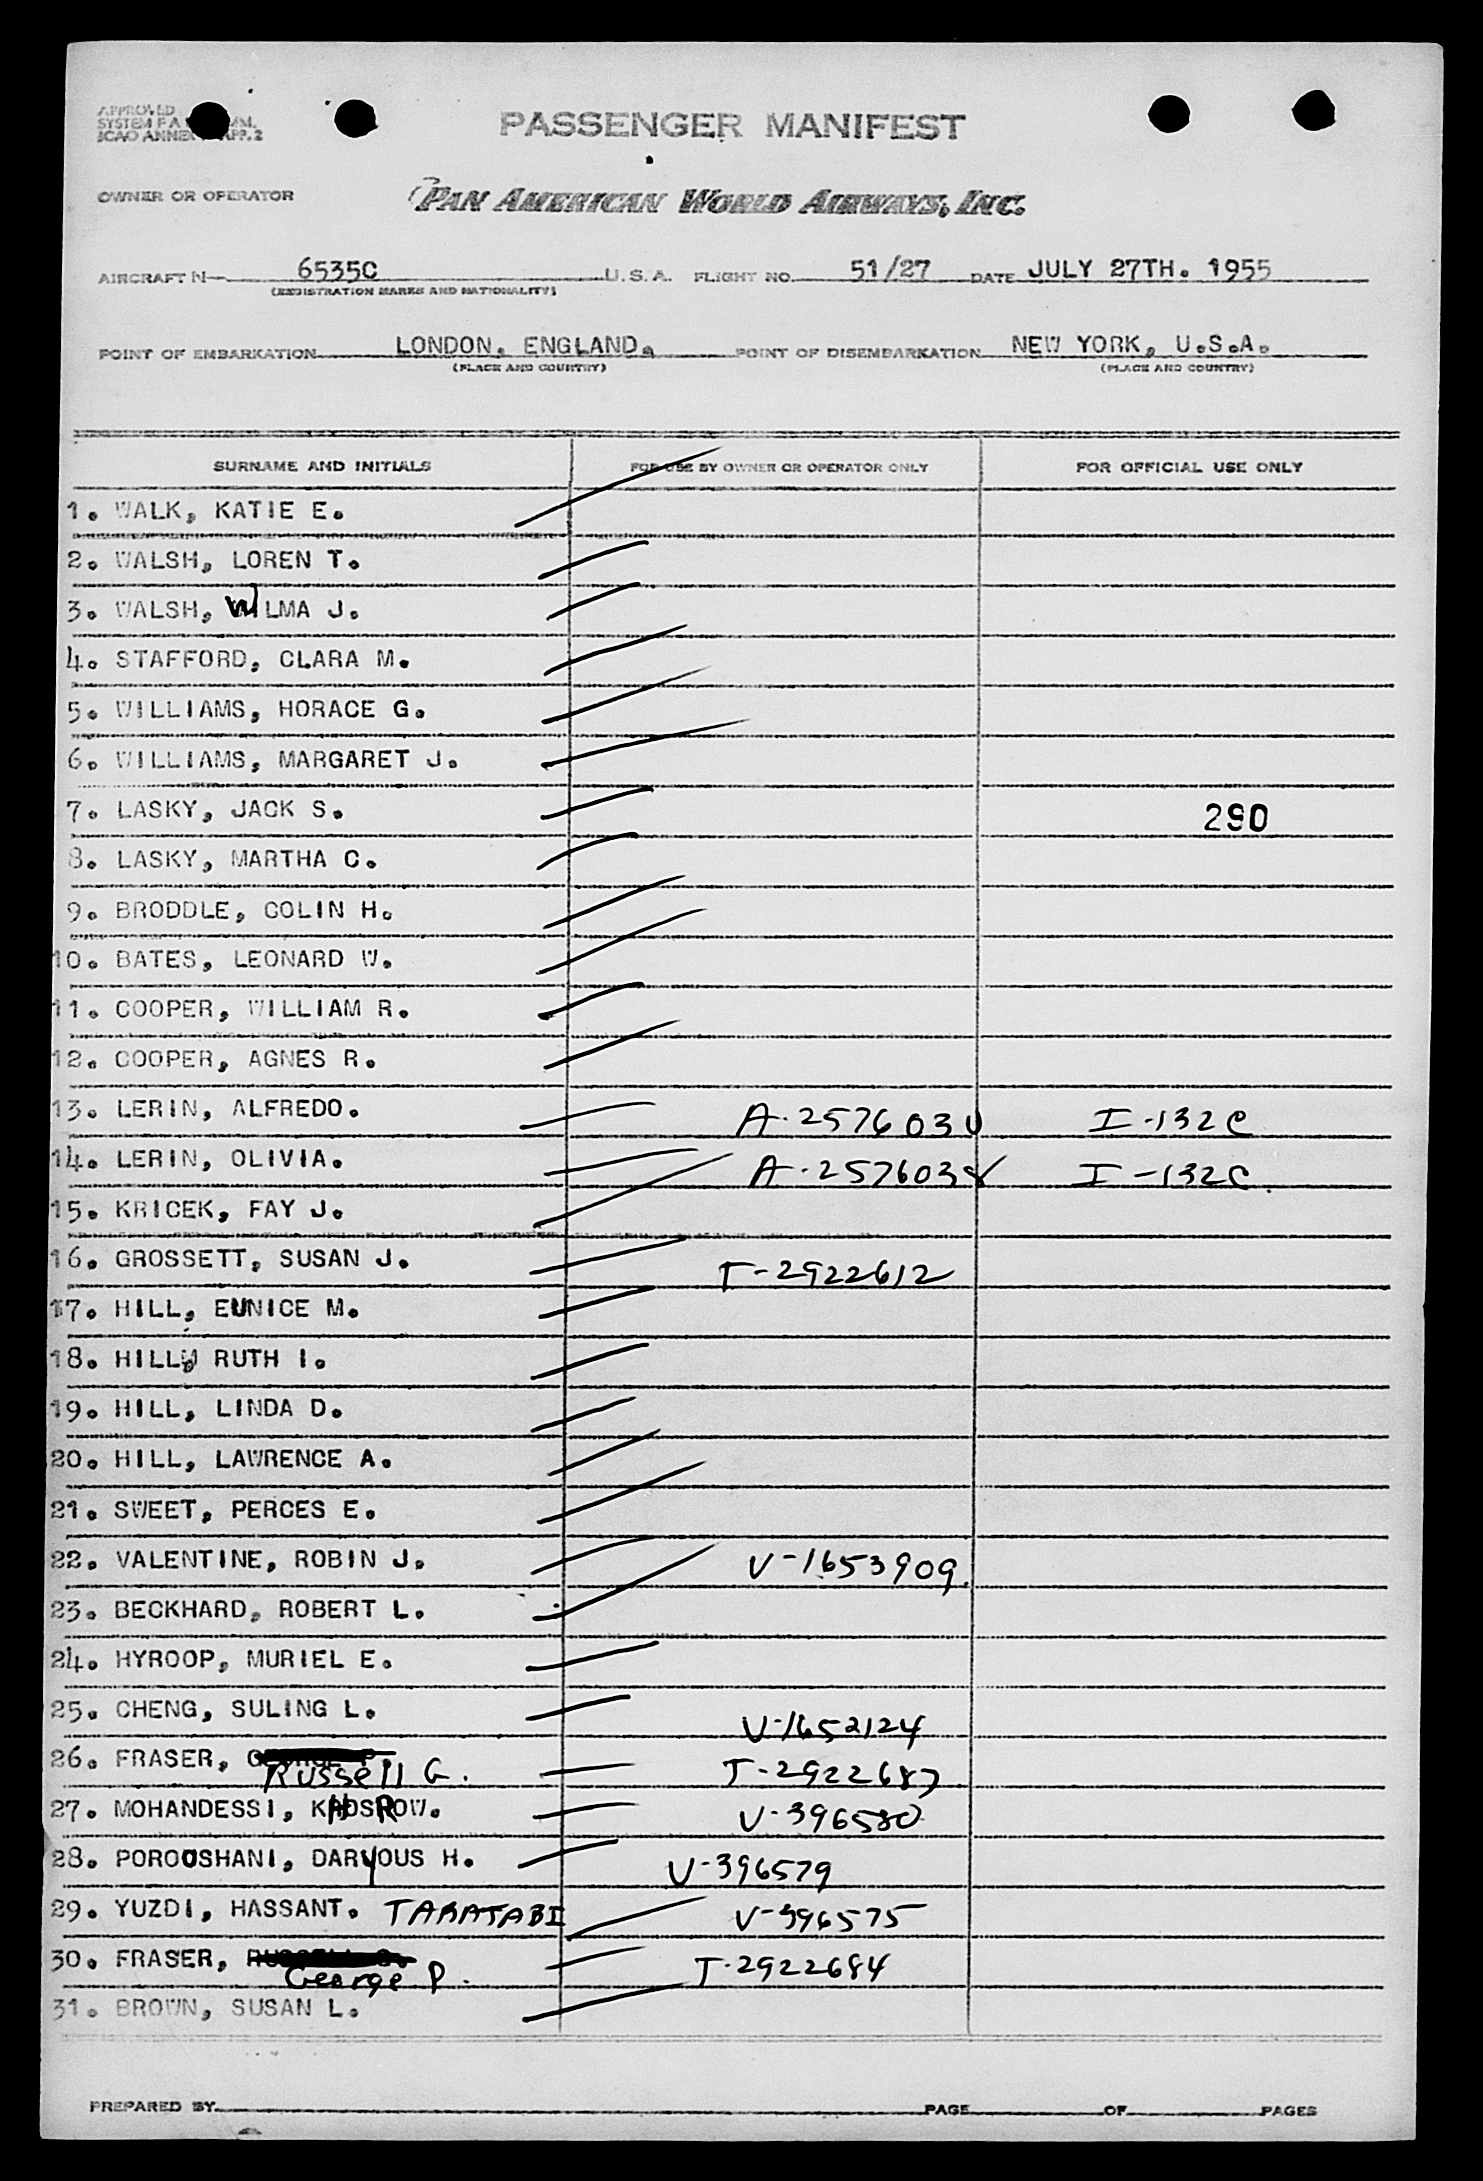 APPROVED
SYSTEM F A
ICAO ANNEX APP. 2
PASSENGER MANIFEST
OWNER OR OPERATOR
PAN AMERICAN WORLD AIRWAYS, INC.
AIRCRAFT N 6535C U. S. A. FLIGHT NO. 51/27 DATE JULY 27TH. 1955
(REGISTRATION MARKS AND NATIONALITY)
POINT OF EMBARKATION LONDON, ENGLAND. POINT OF DISEMBARKATION NEW YORK, U.S.A.
(PLACE AND COUNTRY) (PLACE AND COUNTRY)
SURNAME AND INITIALS FOR USE BY OWNER OR OPERATOR ONLY FOR OFFICIAL USE ONLY
1. WALK, KATIE E.
2. WALSH, LOREN T.
3. WALSH, WILMA J.
4. STAFFORD, CLARA M.
5. WILLIAMS, HORACE G.
6. WILLIAMS, MARGARET J.
7. LASKY, JACK S. 290
8. LASKY, MARTHA C.
9. BRODDLE, COLIN H.
10. BATES, LEONARD W.
11. COOPER, WILLIAM R.
12. COOPER, AGNES R.
13. LERIN, ALFREDO. I-132C
14. LERIN, OLIVIA. I-132C.
15. KRICEK, FAY J.
16. GROSSETT, SUSAN J. T-2922612
17. HILL, EUNICE M.
18. HILL, RUTH I.
19. HILL, LINDA D.
20. HILL, LAWRENCE A.
21. SWEET, PERCES E.
22. VALENTINE, ROBIN J. V-1653909.
23. BECKHARD, ROBERT L.
24. HYROOP, MURIEL E.
25. CHENG, SULING L. V-1652124
26. FRASER, Russell G. T-2922683
27. MOHANDESSI, KHOSROW. V-396580
28. POROOSHANI, DARYOUS H. V-396579
29. YUZDI, HASSANT. TARATABI V-396575
30. FRASER, George P. T-2922684
31. BROWN, SUSAN L.
PREPARED BY PAGE OF PAGES